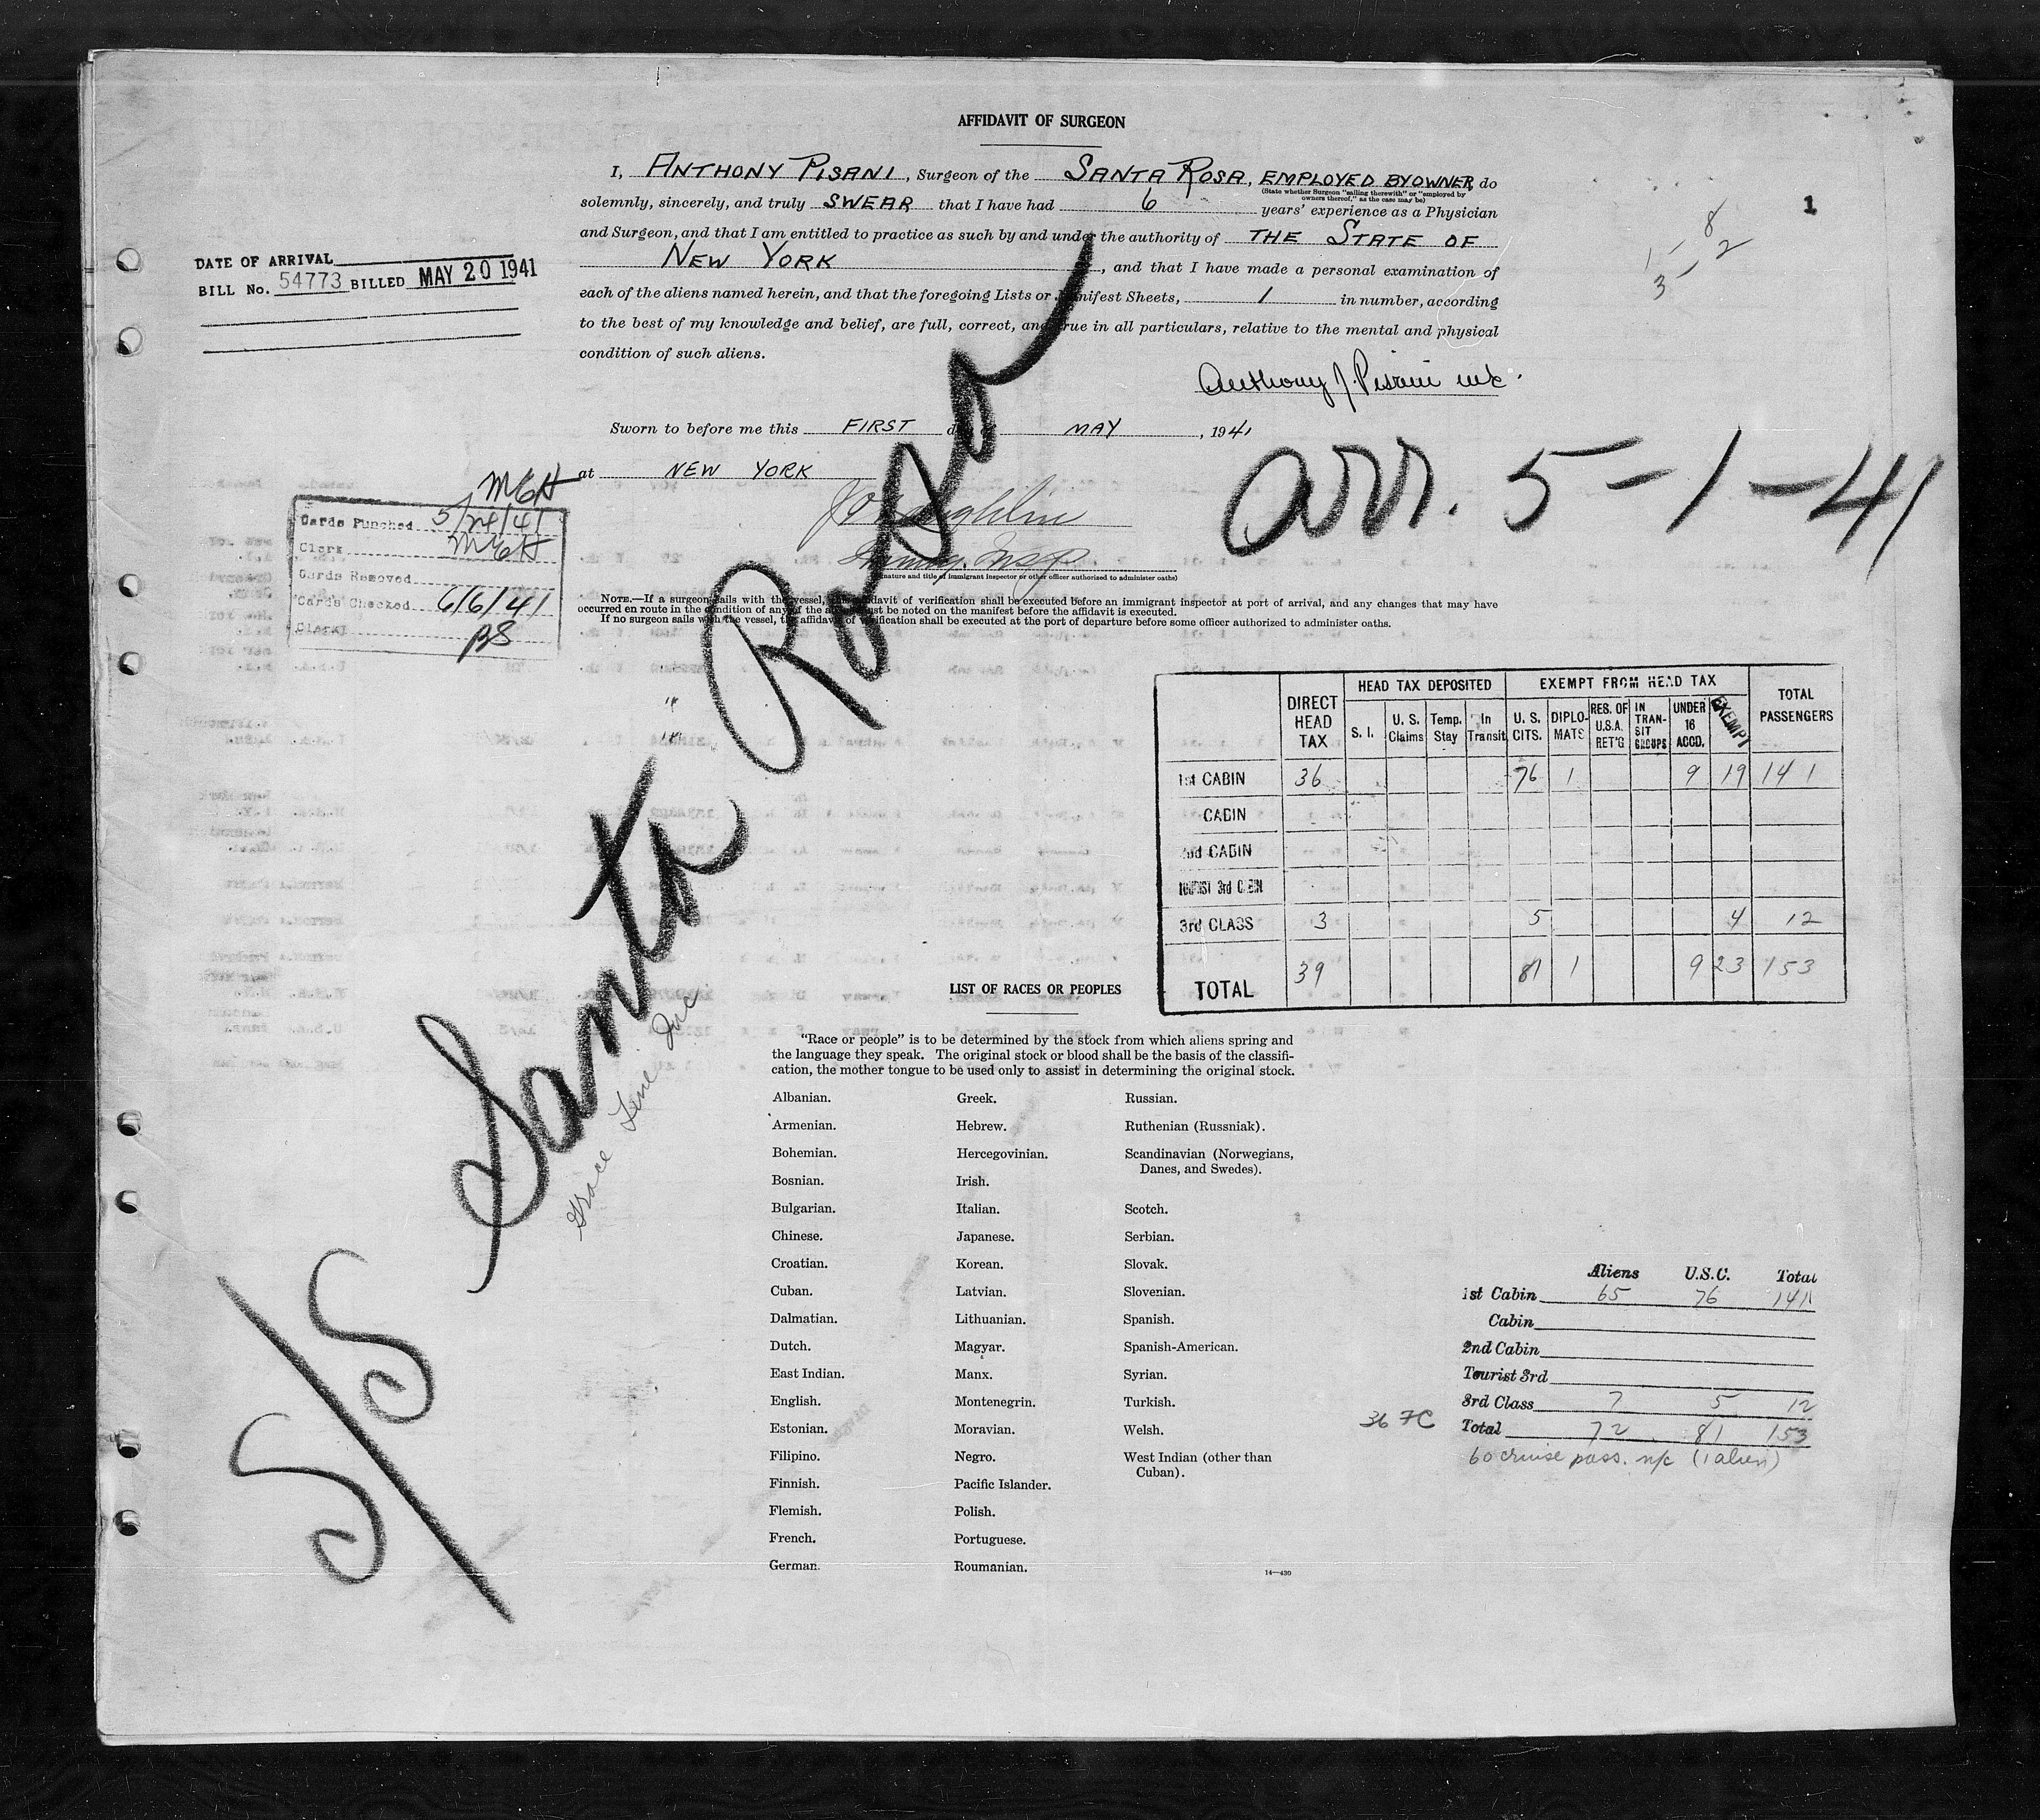 AFFIDAVIT OF SURGEON
I, ANTHONY PISANI, Surgeon of the SANTA ROSA, EMPLOYED BY OWNER, do
(State whether Surgeon "sailing therewith" or "employed by
owners thereof," as the case may be)
solemnly, sincerely, and truly SWEAR that I have had 6 years' experience as a Physician
and Surgeon, and that I am entitled to practice as such by and under the authority of THE STATE OF
NEW YORK, and that I have made a personal examination of
each of the aliens named herein, and that the foregoing Lists or Manifest Sheets, 1 in number, according
to the best of my knowledge and belief, are full, correct, and true in all particulars, relative to the mental and physical
condition of such aliens.
Anthony J. Pisani
Sworn to before me this FIRST day of MAY, 1941
at NEW YORK
Immig. Insp
(Signature and title of immigrant inspector or other officer authorized to administer oaths)
NOTE.—If a surgeon sails with the vessel, this affidavit of verification shall be executed before an immigrant inspector at port of arrival, and any changes that may have
occurred en route in the condition of any of the aliens must be noted on the manifest before the affidavit is executed.
If no surgeon sails with the vessel, the affidavit of verification shall be executed at the port of departure before some officer authorized to administer oaths.
1
8
1 - 2
3 -
DATE OF ARRIVAL
BILL No. 54773 BILLED MAY 20 1941
MGH
Cards Punched 5/24/41
Clerk MGH
Cards Removed
Cards Checked 6/6/41
Clerk BS
arr. 5-1-41
S/S Santa Rosa
Grace Line Inc
DIRECT HEAD TAX HEAD TAX DEPOSITED EXEMPT FROM HEAD TAX TOTAL PASSENGERS
S. I. U. S. Claims Temp. Stay In Transit U. S. CITS. DIPLOMATS RES. OF U.S.A. RET'G IN TRANSIT GROUPS UNDER 16 ACCD. EXEMPT
1st CABIN 36 76 1 9 19 141
CABIN
2nd CABIN
TOURIST 3rd CABIN
3rd CLASS 3 5 4 12
TOTAL 39 81 1 9 23 153
LIST OF RACES OR PEOPLES
"Race or people" is to be determined by the stock from which aliens spring and
the language they speak. The original stock or blood shall be the basis of the classifi-
cation, the mother tongue to be used only to assist in determining the original stock.
Albanian.
Armenian.
Bohemian.
Bosnian.
Bulgarian.
Chinese.
Croatian.
Cuban.
Dalmatian.
Dutch.
East Indian.
English.
Estonian.
Filipino.
Finnish.
Flemish.
French.
German.
Greek.
Hebrew.
Hercegovinian.
Irish.
Italian.
Japanese.
Korean.
Latvian.
Lithuanian.
Magyar.
Manx.
Montenegrin.
Moravian.
Negro.
Pacific Islander.
Polish.
Portuguese.
Roumanian.
Russian.
Ruthenian (Russniak).
Scandinavian (Norwegians,
Danes, and Swedes).
Scotch.
Serbian.
Slovak.
Slovenian.
Spanish.
Spanish-American.
Syrian.
Turkish.
Welsh.
West Indian (other than
Cuban).
14—430
Aliens U.S.C. Total
1st Cabin 65 76 141
Cabin
2nd Cabin
Tourist 3rd
3rd Class 7 5 12
36 FC
Total 72 81 153
60 cruise pass. n/c (1 alien)